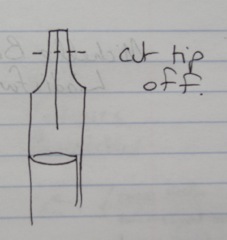 cut tip
off.